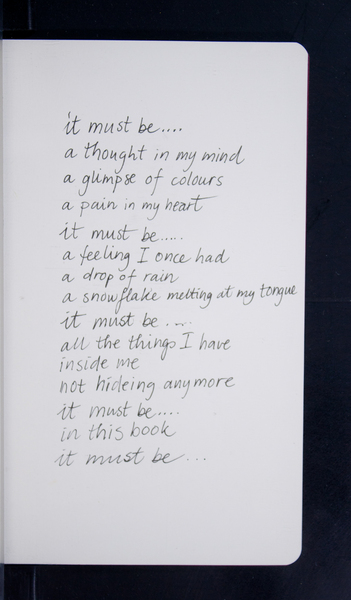 it must be....
a thought in my mind
a glimpse of colours
a pain in my heart
it must be.....
a feeling I once had
a drop of rain
a snowflake melting at my tongue
it must be ....
all the things I have
inside me
not hideing anymore
it must be....
in this book
it must be ...